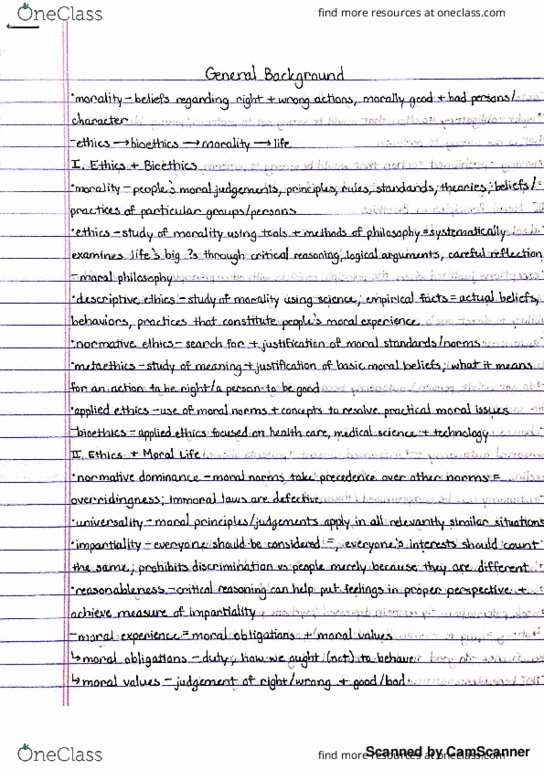 OneClass find more resources at oneclass.com
General Background
•morality – beliefs regarding right + wrong actions, morally good + bad persons/
character
–ethics → bioethics → morality → life
I. Ethics + Bioethics
•morality – people's moral judgements, principles, rules, standards, theories; beliefs/
practices of particular groups/persons
•ethics – study of morality using tools + methods of philosophy = systematically
examines life's big ?s through critical reasoning, logical arguments, careful reflection
–moral philosophy
•descriptive ethics – study of morality using science; empirical facts = actual beliefs,
behaviors, practices that constitute people's moral experience
•normative ethics – search for + justification of moral standards/norms
•metaethics – study of meaning + justification of basic moral beliefs; what it means
for an action to be right/a person to be good
•applied ethics – use of moral norms + concepts to resolve practical moral issues
–bioethics = applied ethics focused on health care, medical science + technology
II. Ethics + Moral Life
•normative dominance – moral norms take precedence over other norms =
overridingness; immoral laws are defective
•universality – moral principles/judgements apply in all relevantly similar situations
•impartiality – everyone should be considered =, everyone's interests should count
the same; prohibits discrimination vs people merely because they are different
•reasonableness – critical reasoning can help put feelings in proper perspective +
achieve measure of impartiality
–moral experience = moral obligations + moral values
↳ moral obligations – duty; how we ought (not) to behave
↳ moral values – judgement of right/wrong + good/bad
OneClass find more resources at oneclass.com
Scanned by CamScanner